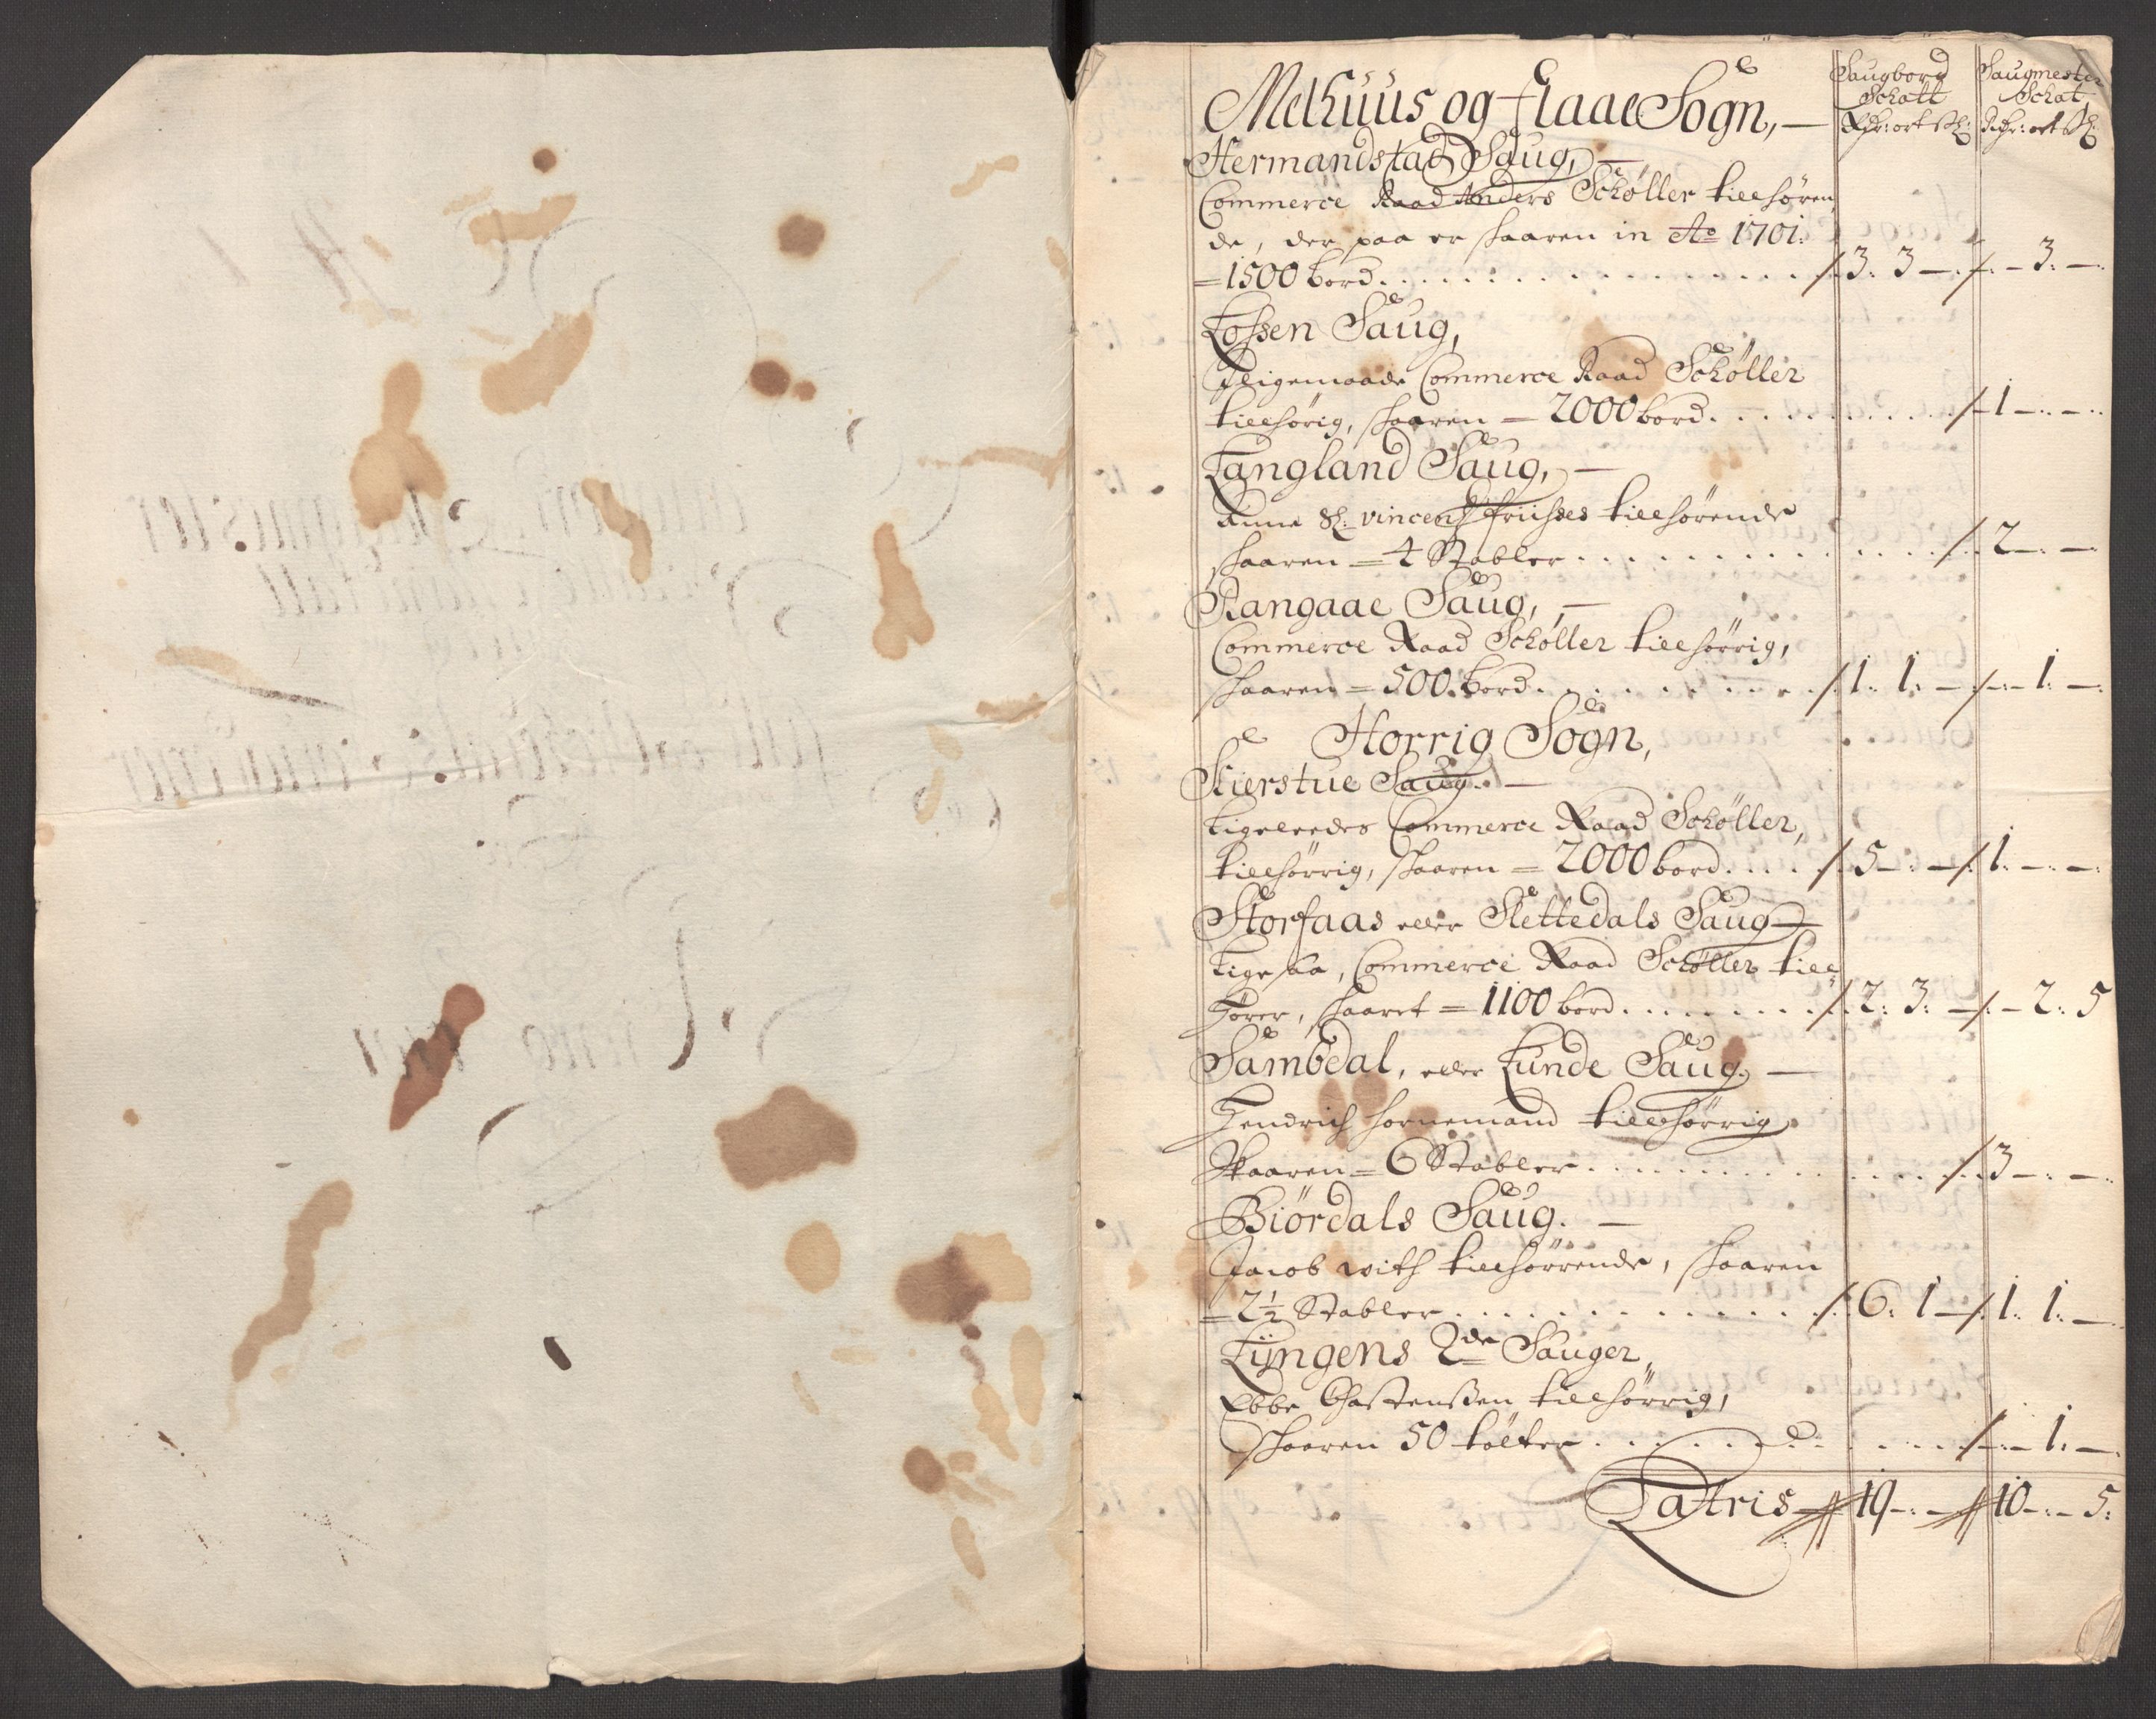 Melhuus og Flaae Sogn, —
Saugbord Schatt
Rdr: ort sk:
Saugmester Schat
Rdr: ort sk:
Hermandstad Saug, —
Commerce Raad Anders Schøller tilhøren
de, der paa er skaaren in Ao 1701:
= 1500 bord . . . . 3: 3 — . — 3: —
Fossen Saug,
Iligemaade Commerce Raad Schøller
tilhørig, skaaren = 2000 bord . . . . 1 — : —
Langland Saug, —
Anna Sl: Vincentz Friisses tilhørende
skaaren = 4 Stabler . . . . 2 — : —
Rangaae Saug, —
Commerce Raad Schøller tilhørrig,
skaaren = 500 bord . . . . 1: 1: — — 1: —
Horrig Sogn,
Kierstue Saug. —
Ligeledes Commerce Raad Schøller,
tilhørrig, skaaren = 2000 bord . . . . 5 — : — 1: — : —
Storfaas eller Slettedals Saug —
Ligesaa, Commerce Raad Schøller till
hører, skaaret = 1100 bord . . . . 2: 3: — — 2: 5
Sambdal, eller Lunde Saug. —
Hendrich Hornemand tilhørrig
Skaaren = 6 Stabler . . . . 3 — : —
Biördals Saug. —
Jacob With tilhørrende, skaaren
= 2½ Stabler . . . . 6: 1 — 1: 1: —
Lÿngens 2de Sauger,
Ebbe Carstenssen tilhørrig,
skaaren 50 tölter . . . . — 1: —
Latris — 19 — : — 10 — : — 5: